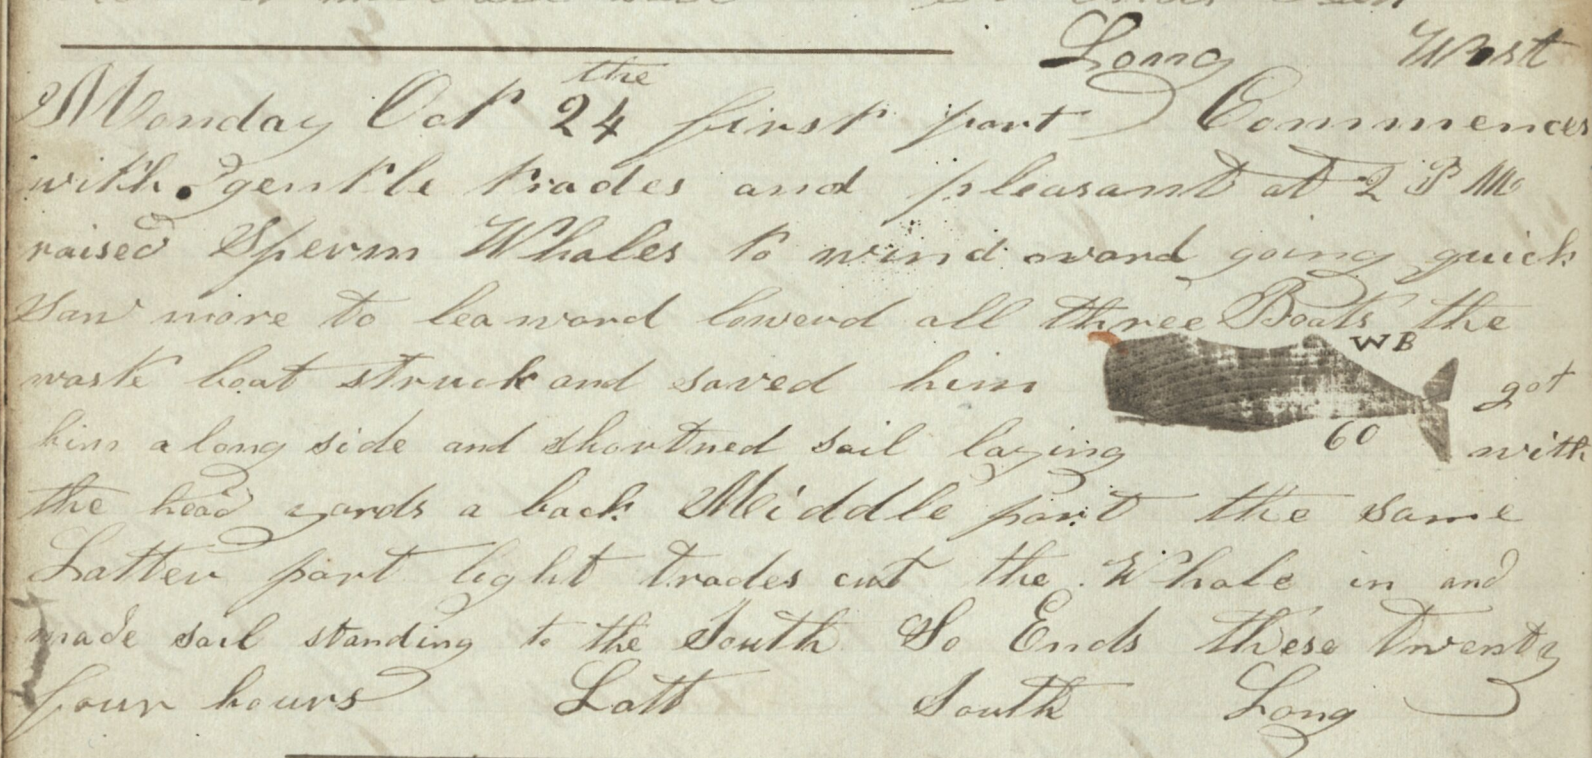 Long West
Monday Oct 24 the first part Commences
with gentle trades and pleasant at 2 P M
raised Sperm Whales to wind oward going quick
Saw more to leaward lowerd all three Boats the
waste boat struck and saved him W B got
him along side and shortned sail laying 60 with
the head yards a back Middle part the same
Latter part light trades cut the Whale in and
made sail standing to the South So Ends these twenty
four hours Latt South Long